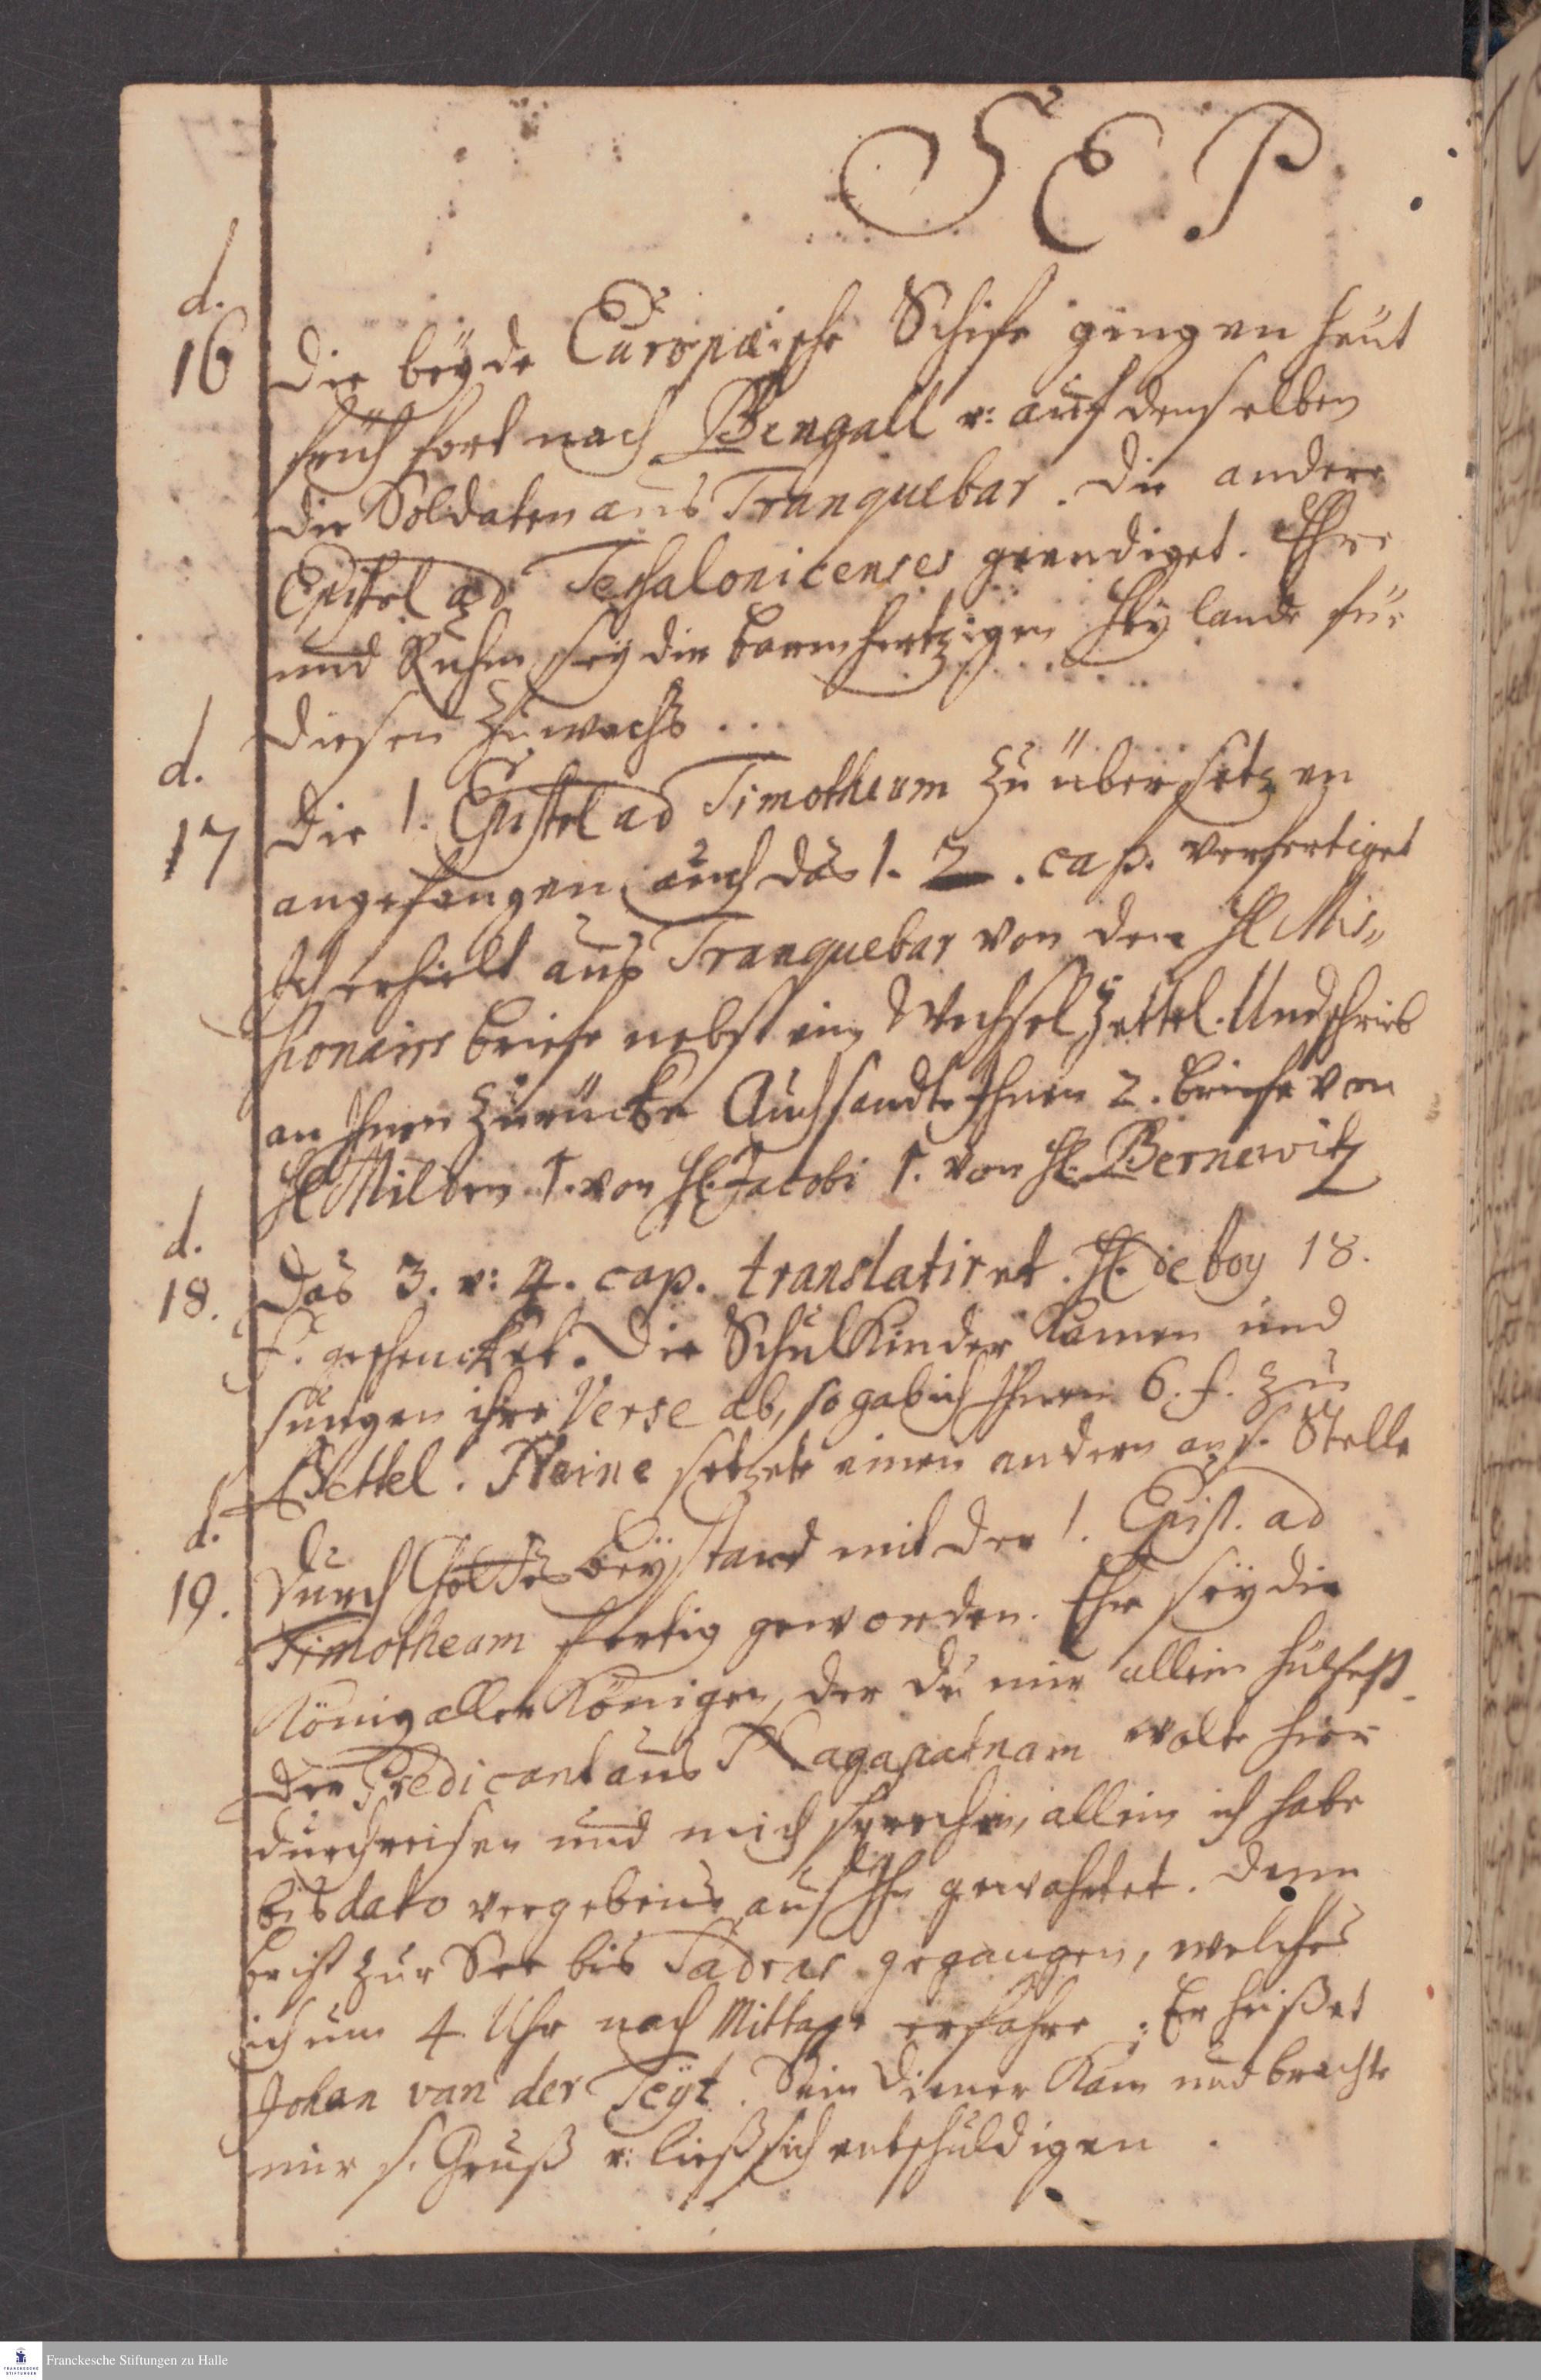 SEP
d.
16 Die beÿde Europæische Schife gingen heut
früh fort nach Bengall u: auf demselben
die Soldaten aus Tranquebar. Die andere
Epistel ad Tessalonicenses geendiget. Ehre
und Ruhm seÿ dir barmhertziger Heÿlande für
diesen Zuwachs ...
d.
17 Die 1. Epistel ad Timotheum zu übersetzen
angefangen, auch das 1. 2. cap. verfertiget
Ich erhielt aus Tranquebar von den H Mis„
sionairs briefe nebst ein Wechsel Zettel. Und schrieb
an Ihnen zurücke Auch sandte Ihnen 2. briefe von
H Milden 1. von H. Jacobi 1. von H. Bernewitz
d.
18. Das 3. u: 4. cap. translatiret. H. de boy 18.
f. geschencket. Die Schul Kinder kamen und
sungen ihre Verse ab, so gab ich Ihnen 6. f. zu
Bettel. Heine setzete einen andern an s. Stelle
d.
19. Durch Gottes beÿstand mit der 1. Epist. ad
Timotheum fertig geworden. Ehre seÿ dir
König aller Königen, der du mir allein hülfest.
Der Predicant aus Nagapatnam wolte hier
durchreisen und mich sprechen, allein ich habe
bis dato vergebens auf Ihn gewahrtet. Denn
er ist zur See bis Sadras gegangen, welches
ich um 4 Uhr nach Mittage erfahre. Er heißet
Johan van der Teÿt. Sein Diener kam und brachte
mir s. Gruß u: ließ sich entschuldigen.
Franckesche Stiftungen zu Halle